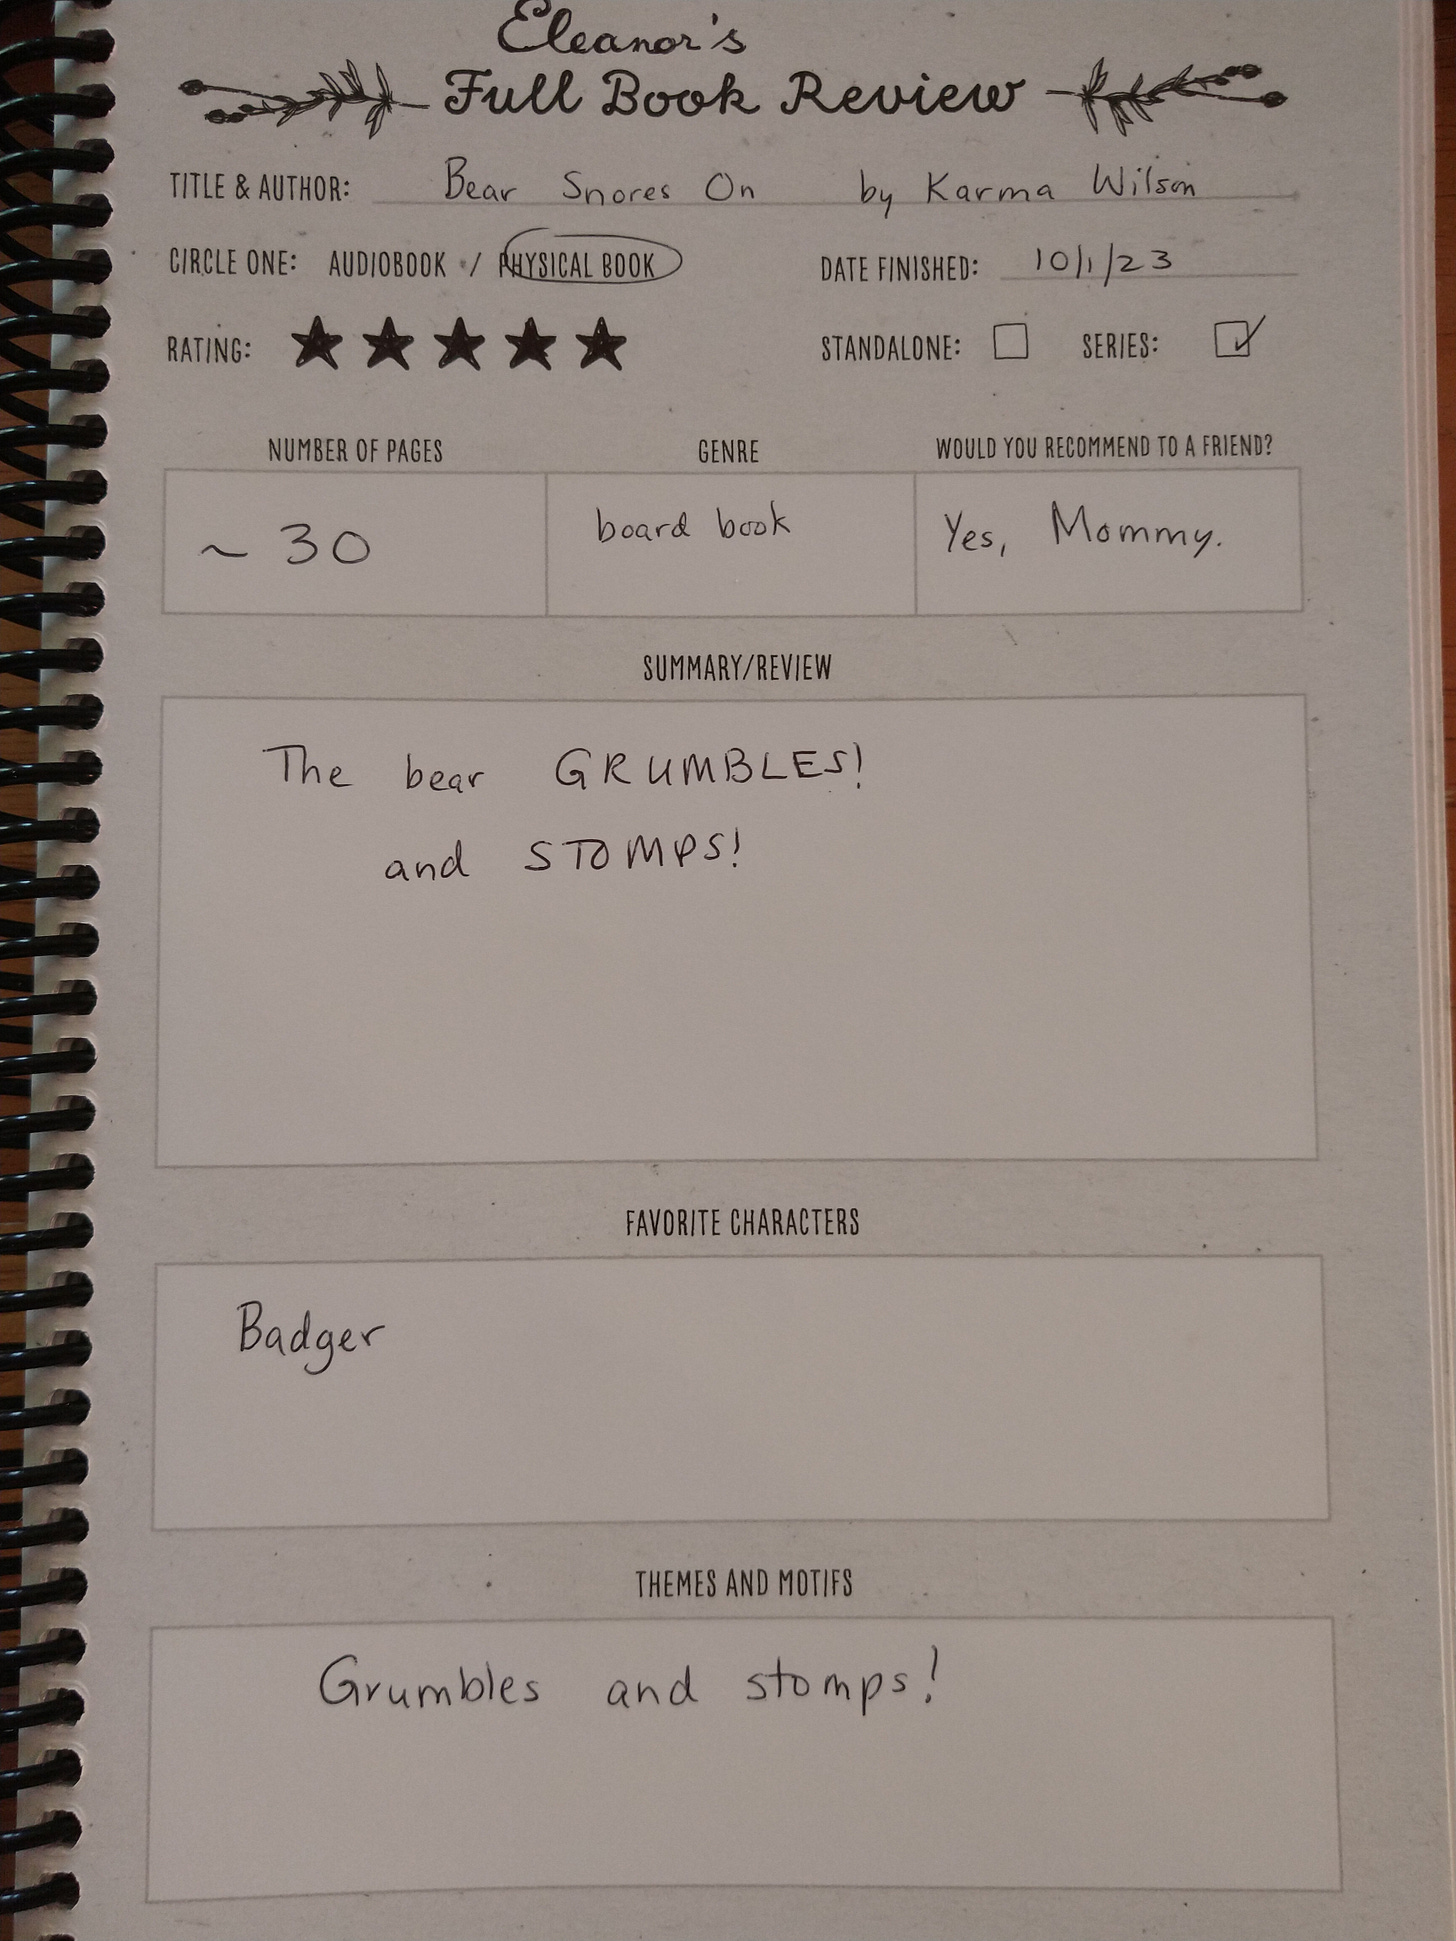 Eleanor's
Full Book Review
TITLE & AUTHOR: Bear Snores On by Karma Wilson
CIRCLE ONE: AUDIOBOOK / PHYSICAL BOOK DATE FINISHED: 10/1/23
RATING: ★★★★★ STANDALONE: SERIES:
NUMBER OF PAGES GENRE WOULD YOU RECOMMEND TO A FRIEND?
~ 30 board book Yes, Mommy.
SUMMARY/REVIEW
The bear GRUMBLES!
and STOMPS!
FAVORITE CHARACTERS
Badger
THEMES AND MOTIFS
Grumbles and stomps!